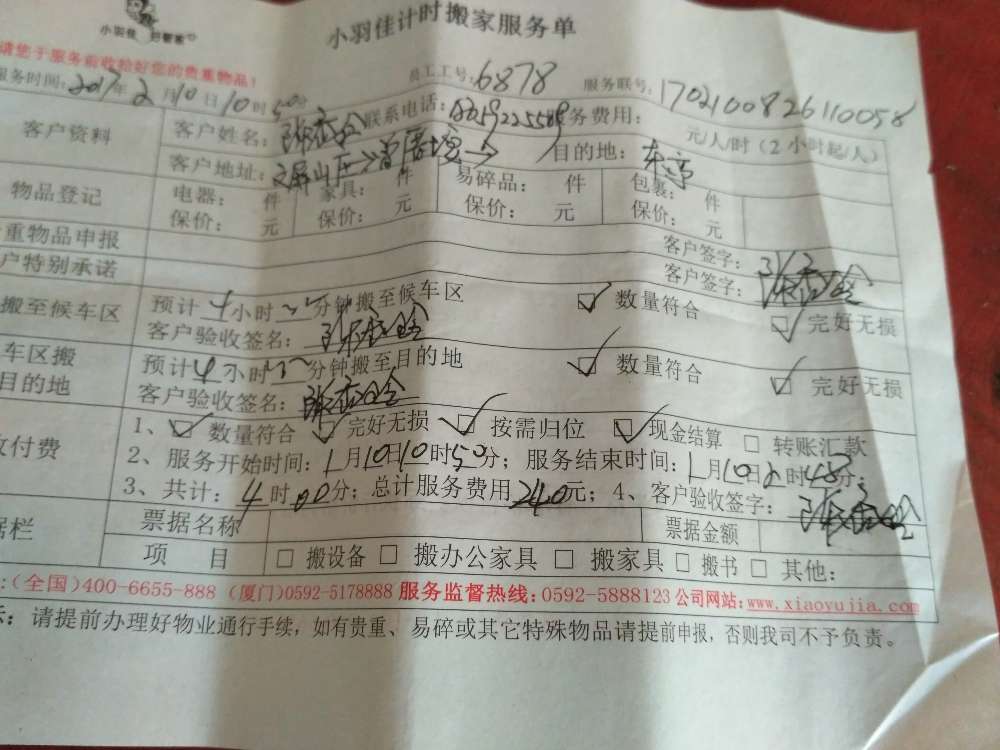 小羽佳 好管家
小羽佳计时搬家服务单
请您于服务前收拾好您的贵重物品！
服务时间：2017年2月10日10时50分 员工工号：6878 服务联号：1702100826110058
客户资料 客户姓名： 联系电话： 务费用： 元/人/时（2小时起/人）
客户地址： 目的地：东亭
物品登记 电器： 件 家具： 件 易碎品： 件 包裹： 件
保价： 元 保价： 元 保价： 元 保价： 元
重物品申报 客户签字：
户特别承诺 客户签字：
搬至候车区 预计4小时 分钟搬至候车区 数量符合 完好无损
客户验收签名：
车区搬 预计4小时 分钟搬至目的地 数量符合 完好无损
目的地 客户验收签名：
收付费 1、数量符合 完好无损 按需归位 现金结算 转账汇款
2、服务开始时间：1月10日10时50分；服务结束时间：1月10日2时48分；
3、共计：4时00分；总计服务费用240元；4、客户验收签字：
据栏 票据名称 票据金额
项 目 搬设备 搬办公家具 搬家具 搬书 其他：
:(全国)400-6655-888 (厦门)0592-5178888 服务监督热线：0592-5888123 公司网站：www.xiaoyujia.com
示：请提前办理好物业通行手续，如有贵重、易碎或其它特殊物品请提前申报，否则我司不予负责。